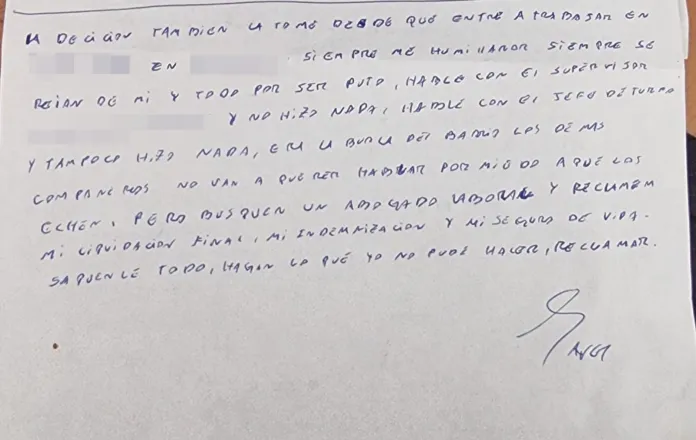 LA DECICION TAMBIEN LA TOMÉ DESDE QUÉ ENTRÉ A TRABAJAR EN
EN SIEMPRE ME HUMILLARON SIEMPRE SE
REIAN DE MI Y TODO POR SER PUTO, HABLÉ CON EL SUPERVISOR
Y NO HIZO NADA, HABLÉ CON EL JEFE DE TURNO
Y TAMPOCO HIZO NADA, ERA LA BURLA DEL BARRIO LOS DEMAS
COMPAÑEROS NO VAN A QUERER HABLAR POR MIEDO A QUÉ LOS
ECHEN, PERO BUSQUEN UN ABOGADO LABORAL Y RECLAMEN
MI LIQUIDACION FINAL, MI INDEMNIZACION Y MI SEGURO DE VIDA.
SAQUENLÉ TODO, HAGAN LO QUÉ YO NO PUDÉ HACER, RECLAMAR.